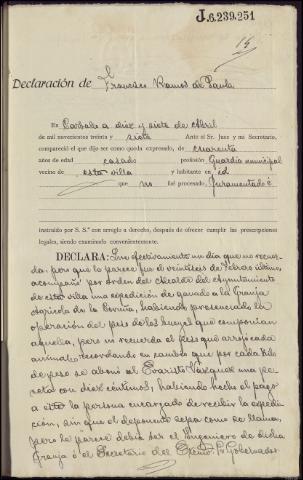 J.6.239.251
15
Declaración de Francisco Ramos de Paula
En Carballo a diez y siete de Abril
de mil novecientos treinta y siete Ante el Sr. Juez y mi Secretario,
compareció el que dijo ser como queda expresado, de cuarenta
años de edad casado profesión Guardia municipal
vecino de esta villa y habitante en id
que no fué procesado, Juramentado é
instruído por S. S.ª con arreglo a derecho, después de ofrecer cumplir las prescripciones
legales, siendo examinado convenientemente.
DECLARA: Que efectivamente un día que no recuer-
da, pero que le parece que el veintiseis de Febrero último,
acompañó por orden del Alcalde del Ayuntamiento
de esta villa una expedición de ganado a la Granja
Agrícola de la Coruña, habiendo presenciado la
operación del peso de los bueyes que componían
aquella, pero ni recuerda el peso que arrojó cada
animal recordando en cambio que por cada kilo
de peso se abonó al Evaristo Vazquez una pe-
seta con diez céntimos, habiendo hecho el pago
a este la persona encargada de recibir la expedi-
ción, sin que el deponente sepa como se llama,
pero le parece debía ser el Ingeniero de dicha
Granja ó el Secretario del Excmo. Sr. Gobernador.